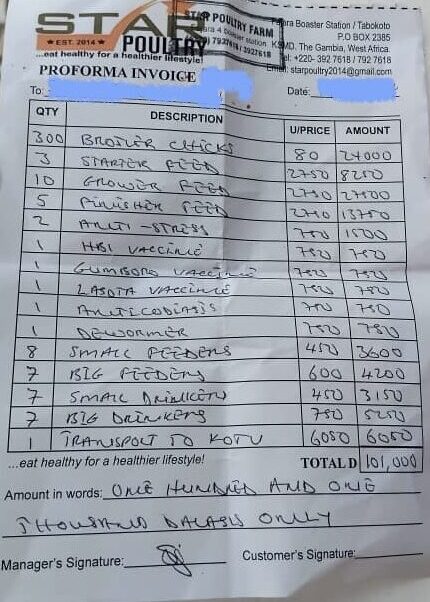 STAR
EST. 2014
POULTRY
...eat healthy for a healthier lifestyle!
STAR POULTRY FARM
booster station
3927618
Boaster Station / Tabokoto
P.O BOX 2385
KSMD. The Gambia, West Africa.
Tel: +220- 392 7618 / 792 7618
Email: starpoultry2014@gmail.com
PROFORMA INVOICE
To: Date:
QTY DESCRIPTION U/PRICE AMOUNT
300 BROILER CHICKS 80 24000
3 STARTER FEED 2750 8250
10 GROWER FEED 2750 27500
5 FINISHER FEED 2750 13750
2 ANTI-STRESS 750 1500
1 HBI VACCINE 750 750
1 GUMBORO VACCINE 750 750
1 LASOTA VACCINE 750 750
1 ANTICODIASIS 750 750
1 DEWORMER 750 750
8 SMALL FEEDERS 450 3600
7 BIG FEEDERS 600 4200
7 SMALL DRINKERS 450 3150
7 BIG DRINKERS 750 5250
1 TRANSPORT TO KOTU 6050 6050
...eat healthy for a healthier lifestyle! TOTAL D 101,000
Amount in words: ONE HUNDRED AND ONE
THOUSAND DALASIS ONLY
Manager's Signature: Customer's Signature: